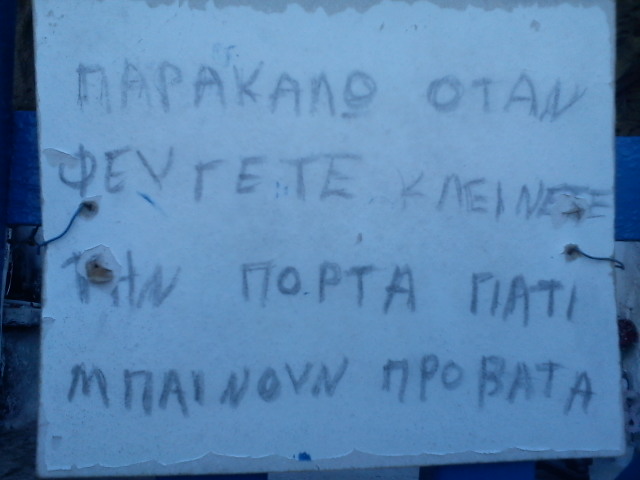 ΠΑΡΑΚΑΛΩ ΟΤΑΝ
ΦΕΥΓΕΤΕ ΚΛΕΙΝΕΤΕ
ΤΗΝ ΠΟΡΤΑ ΓΙΑΤΙ
ΜΠΑΙΝΟΥΝ ΠΡΟΒΑΤΑ